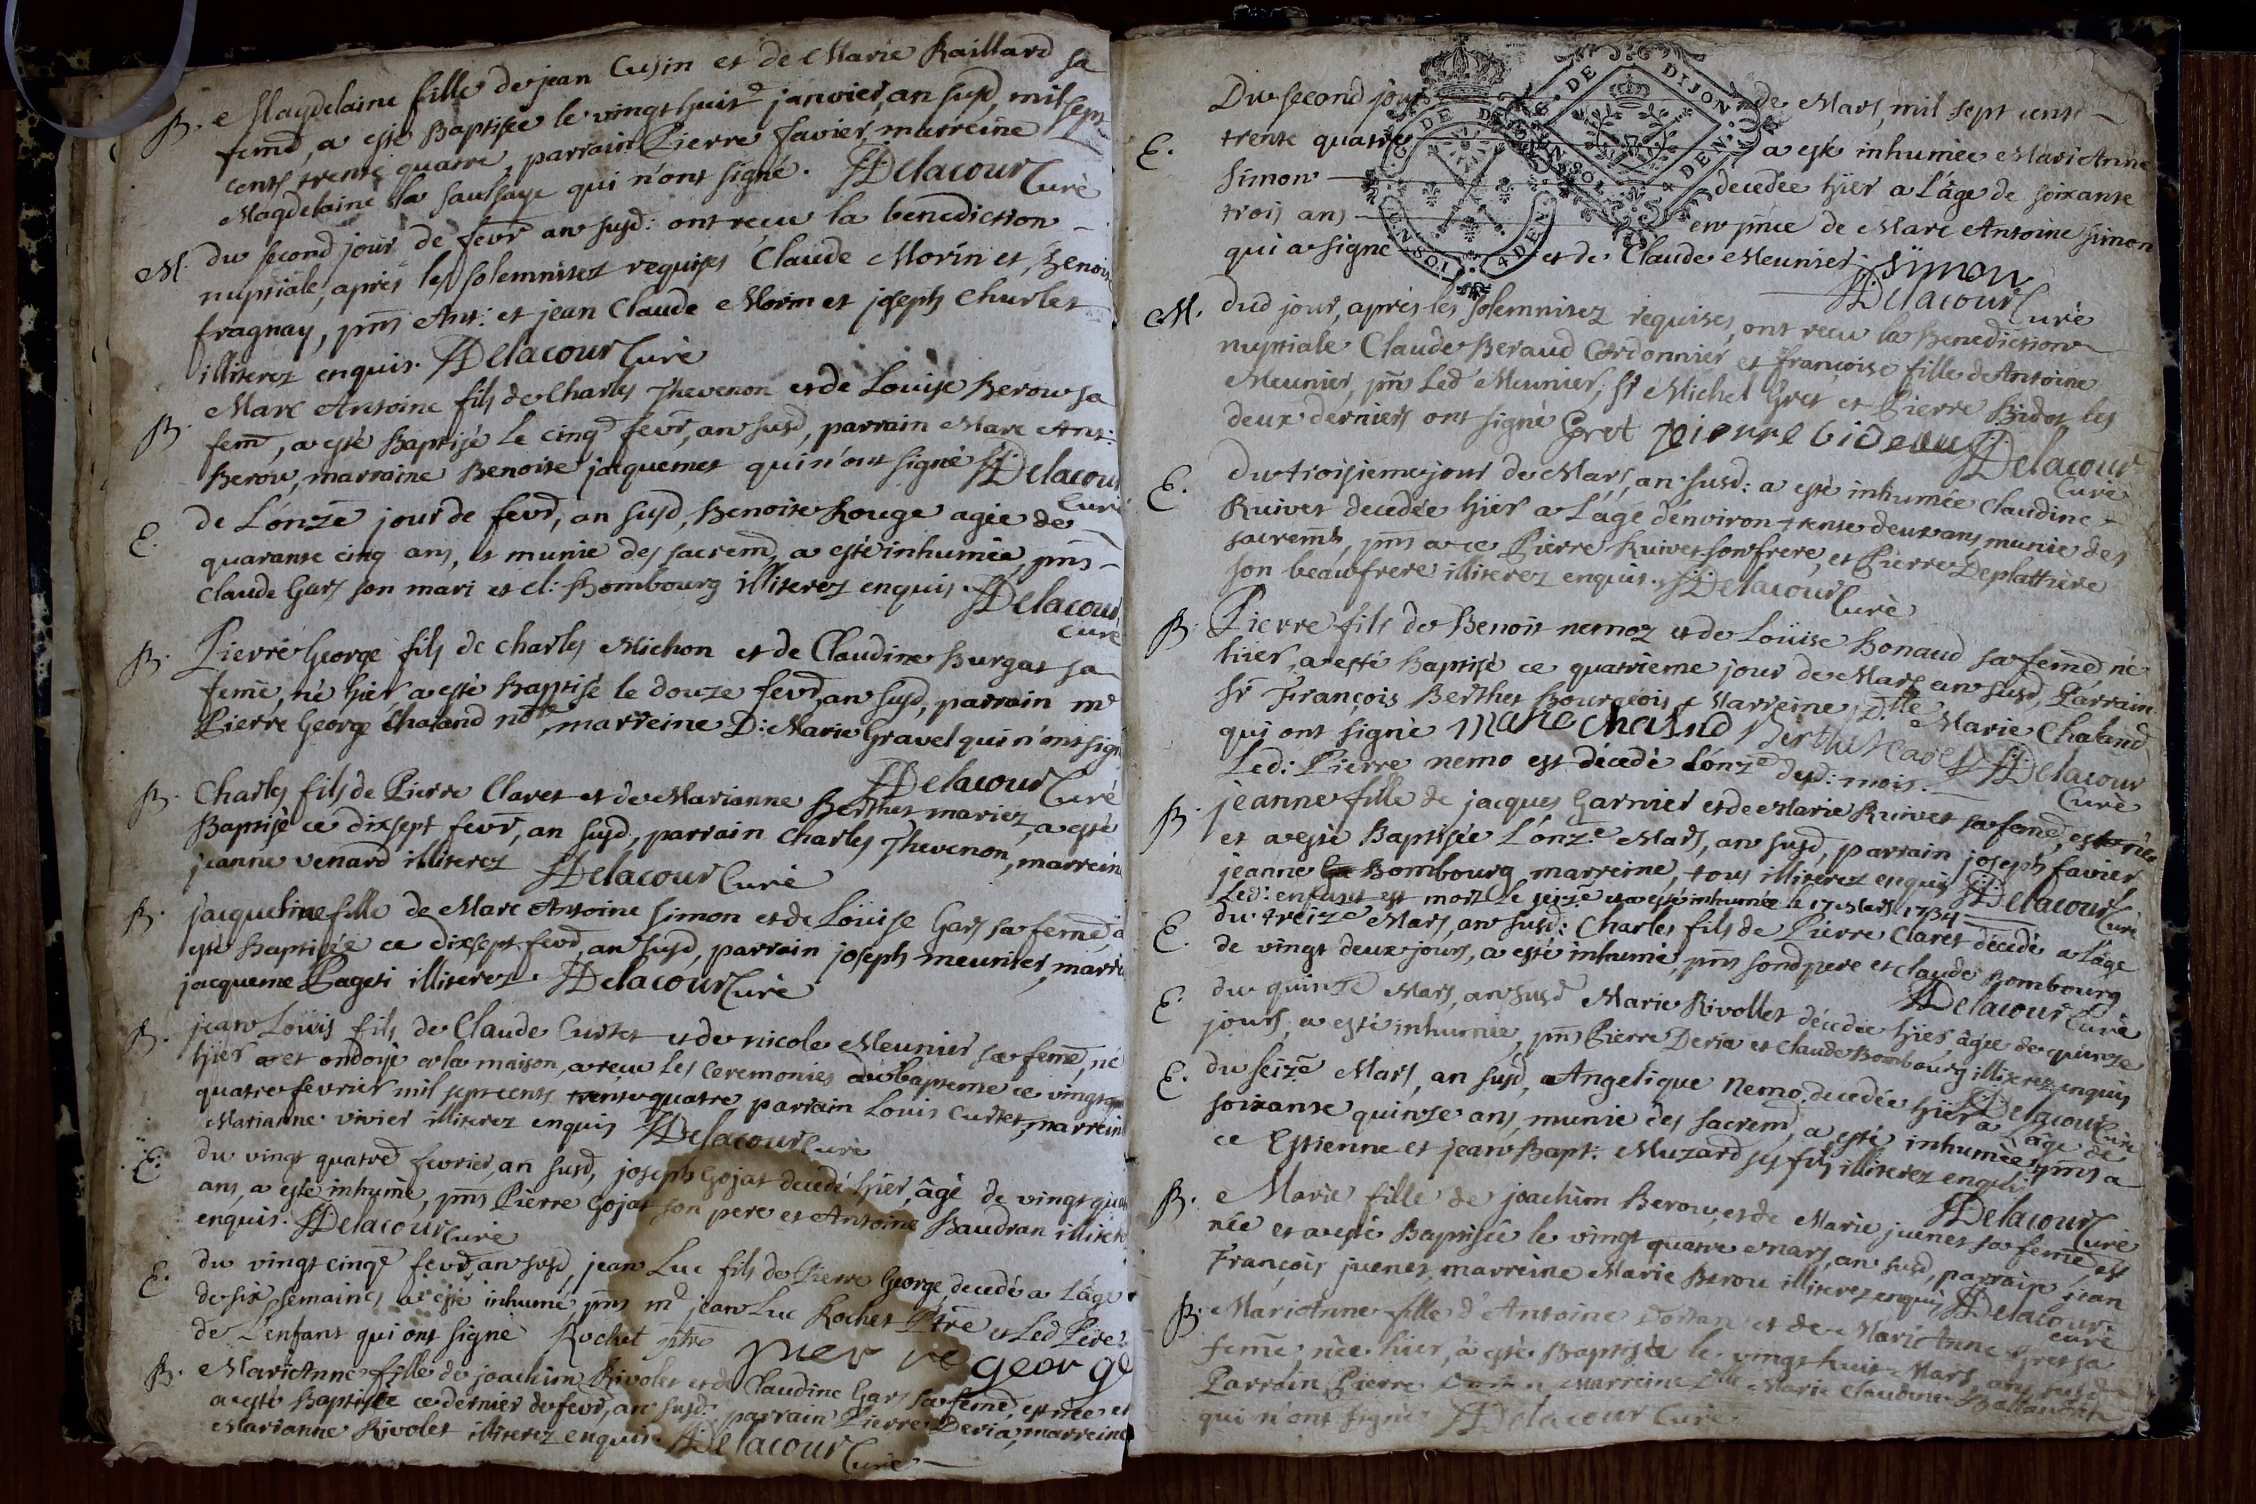 B. Magdelaine fille de jean Cusin et de Marie Raillard sa
femē, a esté Baptisée le vingt huitē janvier, an susd, mil sept
cents trente quatre, parrain Pierre favier, marreine
Magdelaine la saulsaye qui n'ont signé. Delacour Curé
M. du second jour de fevr an susd: ont reçu la benediction
nuptiale, après les solemnitez requises Claude Morin et, Benoite
fragnay, pns Ant: et jean Claude Morin et joseph Charles
illiterez enquis. Delacour Curé
B. Marc Antoine fils de Charles Thevenon et de Louise Berou sa
fem, a esté Baptisé le cinq fevr, an susd, parrain Marc Ant:
Berou, marraine Benoite jacquemet qui n'ont signé Delacour
Curé
E. de L'onzē jour de fevr, an susd, Benoite Rouge agée de
quarante cinq ans, et munie des sacremd, a esté inhumée, pns
Claude Gars son mari et cl: Bombourg illiterez enquis. Delacour
Curé
B. Pierre George fils de Charles Michon et de Claudine Burgat sa
femē, né hier, a esté Baptisé le douze fevr, an susd, parrain mr
Pierre George Chaland nore, marreine D: Marie Gravel qui n'ont signé
Delacour Curé
B. Charles fils de Pierre Claret et de Marianne Berthet mariez, a esté
Baptisé ce dixsept fevr, an susd, parrain Charles Thevenon, marreine
jeanne venard illiterez Delacour Curé
B. jacqueline fille de Marc Antoine simon et de Loüise Gars sa femē, a
esté Baptisée ce dixsept fevr, an susd, parrain joseph meunier, marre
jacqueme Pageti illiterez. Delacour Curé
B. jean Loüis fils de Claude Curtet et de nicole Meunier sa femē, né
hier et ondoÿé a la maison, a reçu les ceremonies du bapteme ce vingt
quatre fevrier mil sept cents trente quatre parrain Louis Curtet, marreine
Marianne vivier illiterez enquis Delacour Curé
E. du vingt quatre fevrier, an susd, joseph Gojat decedé hier, âgé de vingt quatre
ans, a esté inhumé, pns Pierre Gojat son pere et Antoine Baudran illiterez
enquis. Delacour Curé
E. du vingt cinqē fevr an susd, jean Luc fils de Pierre George, decedé a L'âge
de six semaines a esté inhumé pns mr jean Luc Rochet Ptre et Led Pere
de L'enfant qui ont signé Rochet ptre pier re george
B. MariAnne fille de joachim Rivolet et de Claudine Gars sa femē, est née et
a esté Baptisée ce dernier de fevr, an susd: parrain Pierre Deria, marreine
Marianne Rivolet illiterez enquis. Delacour Curé
G. DE DIJON
4 DEN.
Du second jour de Mars, mil sept cents
E. trente quatre a esté inhumée MariAnne
Simon decedée hÿer a L'âge de soixante
trois ans en pnce de Marc Antoine simon
qui a signé et de Claude Meunier. Simon
Delacour Curé
M. dud jour, après les solemnitez requises, ont reçu la Benediction
nuptiale Claude Beraud Cordonnier et françoise fille de Antoine
Meunier, pns Led Meunier, Sr Michel Gret et Pierre Bidot, les
deux derniers ont signé Gret pierre bideau Delacour
Curé
E. du troisiéme jour de Mars, an susd: a esté inhumée Claudine
Ruivet decedée hier a L'âge d'environ trente deux ans, munie des
sacremts, pns a ce Pierre Ruivet son frere, et Pierre Deplattiere
son beaufrere illiterez enquis. Delacour Curé
B. Pierre fils de Benoit nemoz et de Loüise Bonaud sa femē né
hier, a esté Baptisé ce quatrieme jour de Mars an susd, Parrain
Sr François Berthet Bourgeois, Marreine Dlle Marie Chaland
qui ont signé marie chaland Berthet Delacour
Curé
Led: Pierre nemo est décédé L'onze dud: mois.
B. jeanne fille de jacques Garnier et de Marie Ruivet sa femē, est née
et a esté Baptisée L'onze Mars, an susd, parrain joseph favier
jeanne Bombourg marreine, tous illiterez enquis Delacour Curé
Led: enfant est mort Le seizē et a esté inhumée le 17 Mars 1734
E. du treize Mars, an susd: Charles fils de Pierre Claret décédé a L'âge
de vingt deux jours, a esté inhumé, pns sond pere et Claude Bombourg
Delacour Curé
E. du quinze Mars, an susd Marie Rivollet décédée hier, âgée de quinze
jours, a esté inhumée, pns Pierre Deria et Claude Bombourg illiterez enquis
Delacour Curé
E. du seizē Mars, an susd, Angelique Nemo, decedée hÿer a L'âge de
soixante quinze ans, munie des sacrem, a esté inhumée, pns a
ce Estienne et jean Bapt: Muzard ses fils illiterez enquis.
Delacour Curé
B. Marie fille de joachim Berou, et de Marie juenet sa femē, est
née et a esté Baptisée le vingt quatre mars, an susd, parrain jean
François juenet, marreine Marie Berou illiterez enquis Delacour
curé
B. MariAnne fille d'Antoine Dortan et de MariAnne Gret sa
femē, née hier, a esté Baptisée le vingt huit Mars, an susd
Parrain Pierre marreine Dlle Marie Claudine
qui n'ont signé Delacour Curé